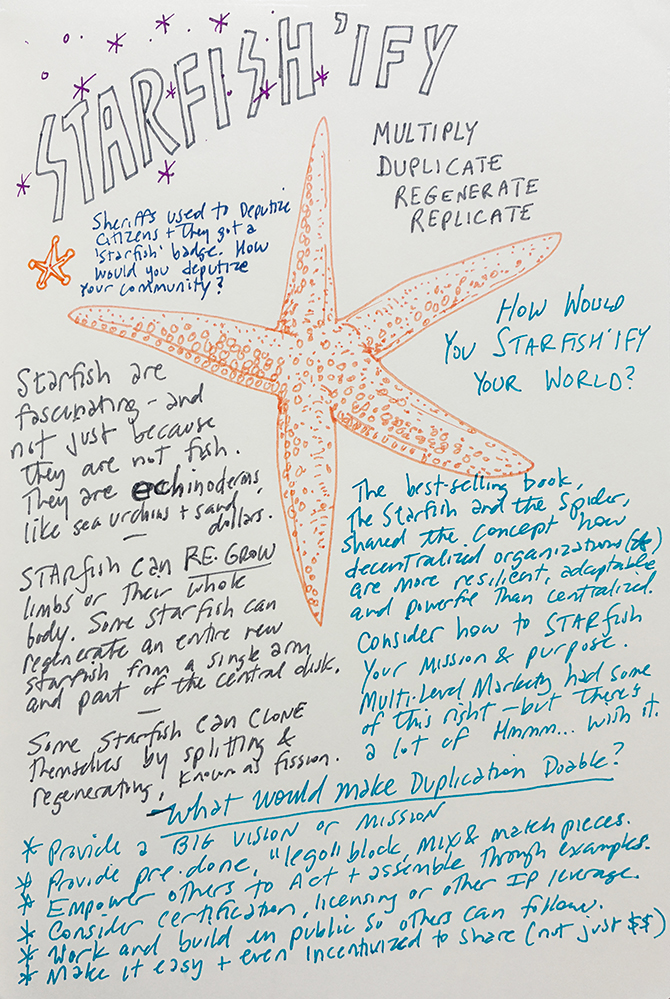 STARFISH'IFY
MULTIPLY
DUPLICATE
REGENERATE
REPLICATE
Sheriffs used to Deputize
citizens + they got a
'starfish' badge. How
would you deputize
your community?
HOW WOULD
YOU STARFISH'IFY
YOUR WORLD?
Starfish are
fascinating - and
not just because
they are not fish.
They are echinoderms,
like sea urchins + sand
dollars.
STARfish can RE.GROW
limbs or their whole
body. Some starfish can
regenerate an entire new
starfish from a single arm
and part of the central disk.
Some starfish can CLONE
themselves by splitting &
regenerating, known as fission.
The best-selling book,
The Starfish and the Spider,
shared the concept how
decentralized organizations (*)
are more resilient, adaptable
and powerful than centralized.
Consider how to STARfish
your mission & purpose.
Multi-Level Marketing had some
of this right - but there's
a lot of Hmmm... with it.
- What would make Duplication Doable?
* Provide a BIG VISION or MISSION
* Provide pre.done, "lego" block, mix & match pieces.
* Empower others to Act + assemble through examples.
* Consider certification, licensing or other IP leverage.
* Work and build in public so others can follow.
* Make it easy + even incentivized to share (not just $$)